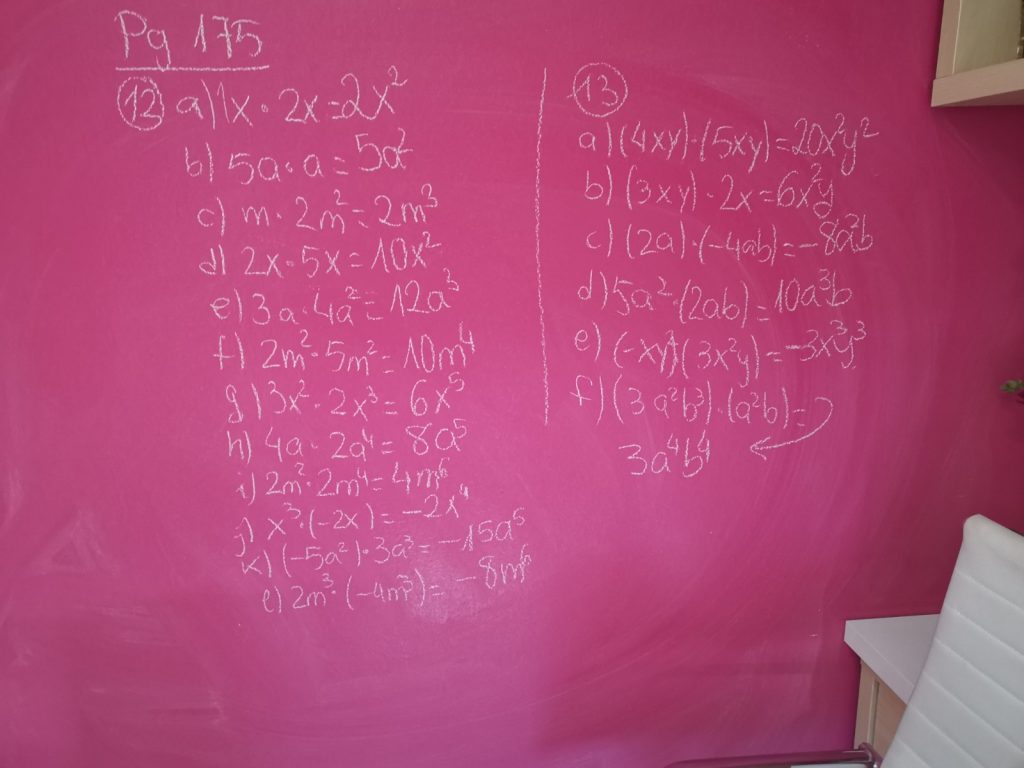 Pg 175
12 a) 1x · 2x = 2x²
b) 5a · a = 5a²
c) m · 2m² = 2m³
d) 2x · 5x = 10x²
e) 3a · 4a² = 12a³
f) 2m² · 5m² = 10m⁴
g) 3x² · 2x³ = 6x⁵
h) 4a · 2a⁴ = 8a⁵
i) 2m² · 2m⁴ = 4m⁶
j) x³ · (-2x) = -2x⁴
k) (-5a²) · 3a³ = -15a⁵
l) 2m³ · (-4m³) = -8m⁶
13
a) (4xy) · (5xy) = 20x²y²
b) (3xy) · 2x = 6x²y
c) (2a) · (-4ab) = -8a²b
d) 5a² · (2ab) = 10a³b
e) (3x²y) = -3x³y³
f) (3 a²b³) · (a²b) =
3a⁴b⁴